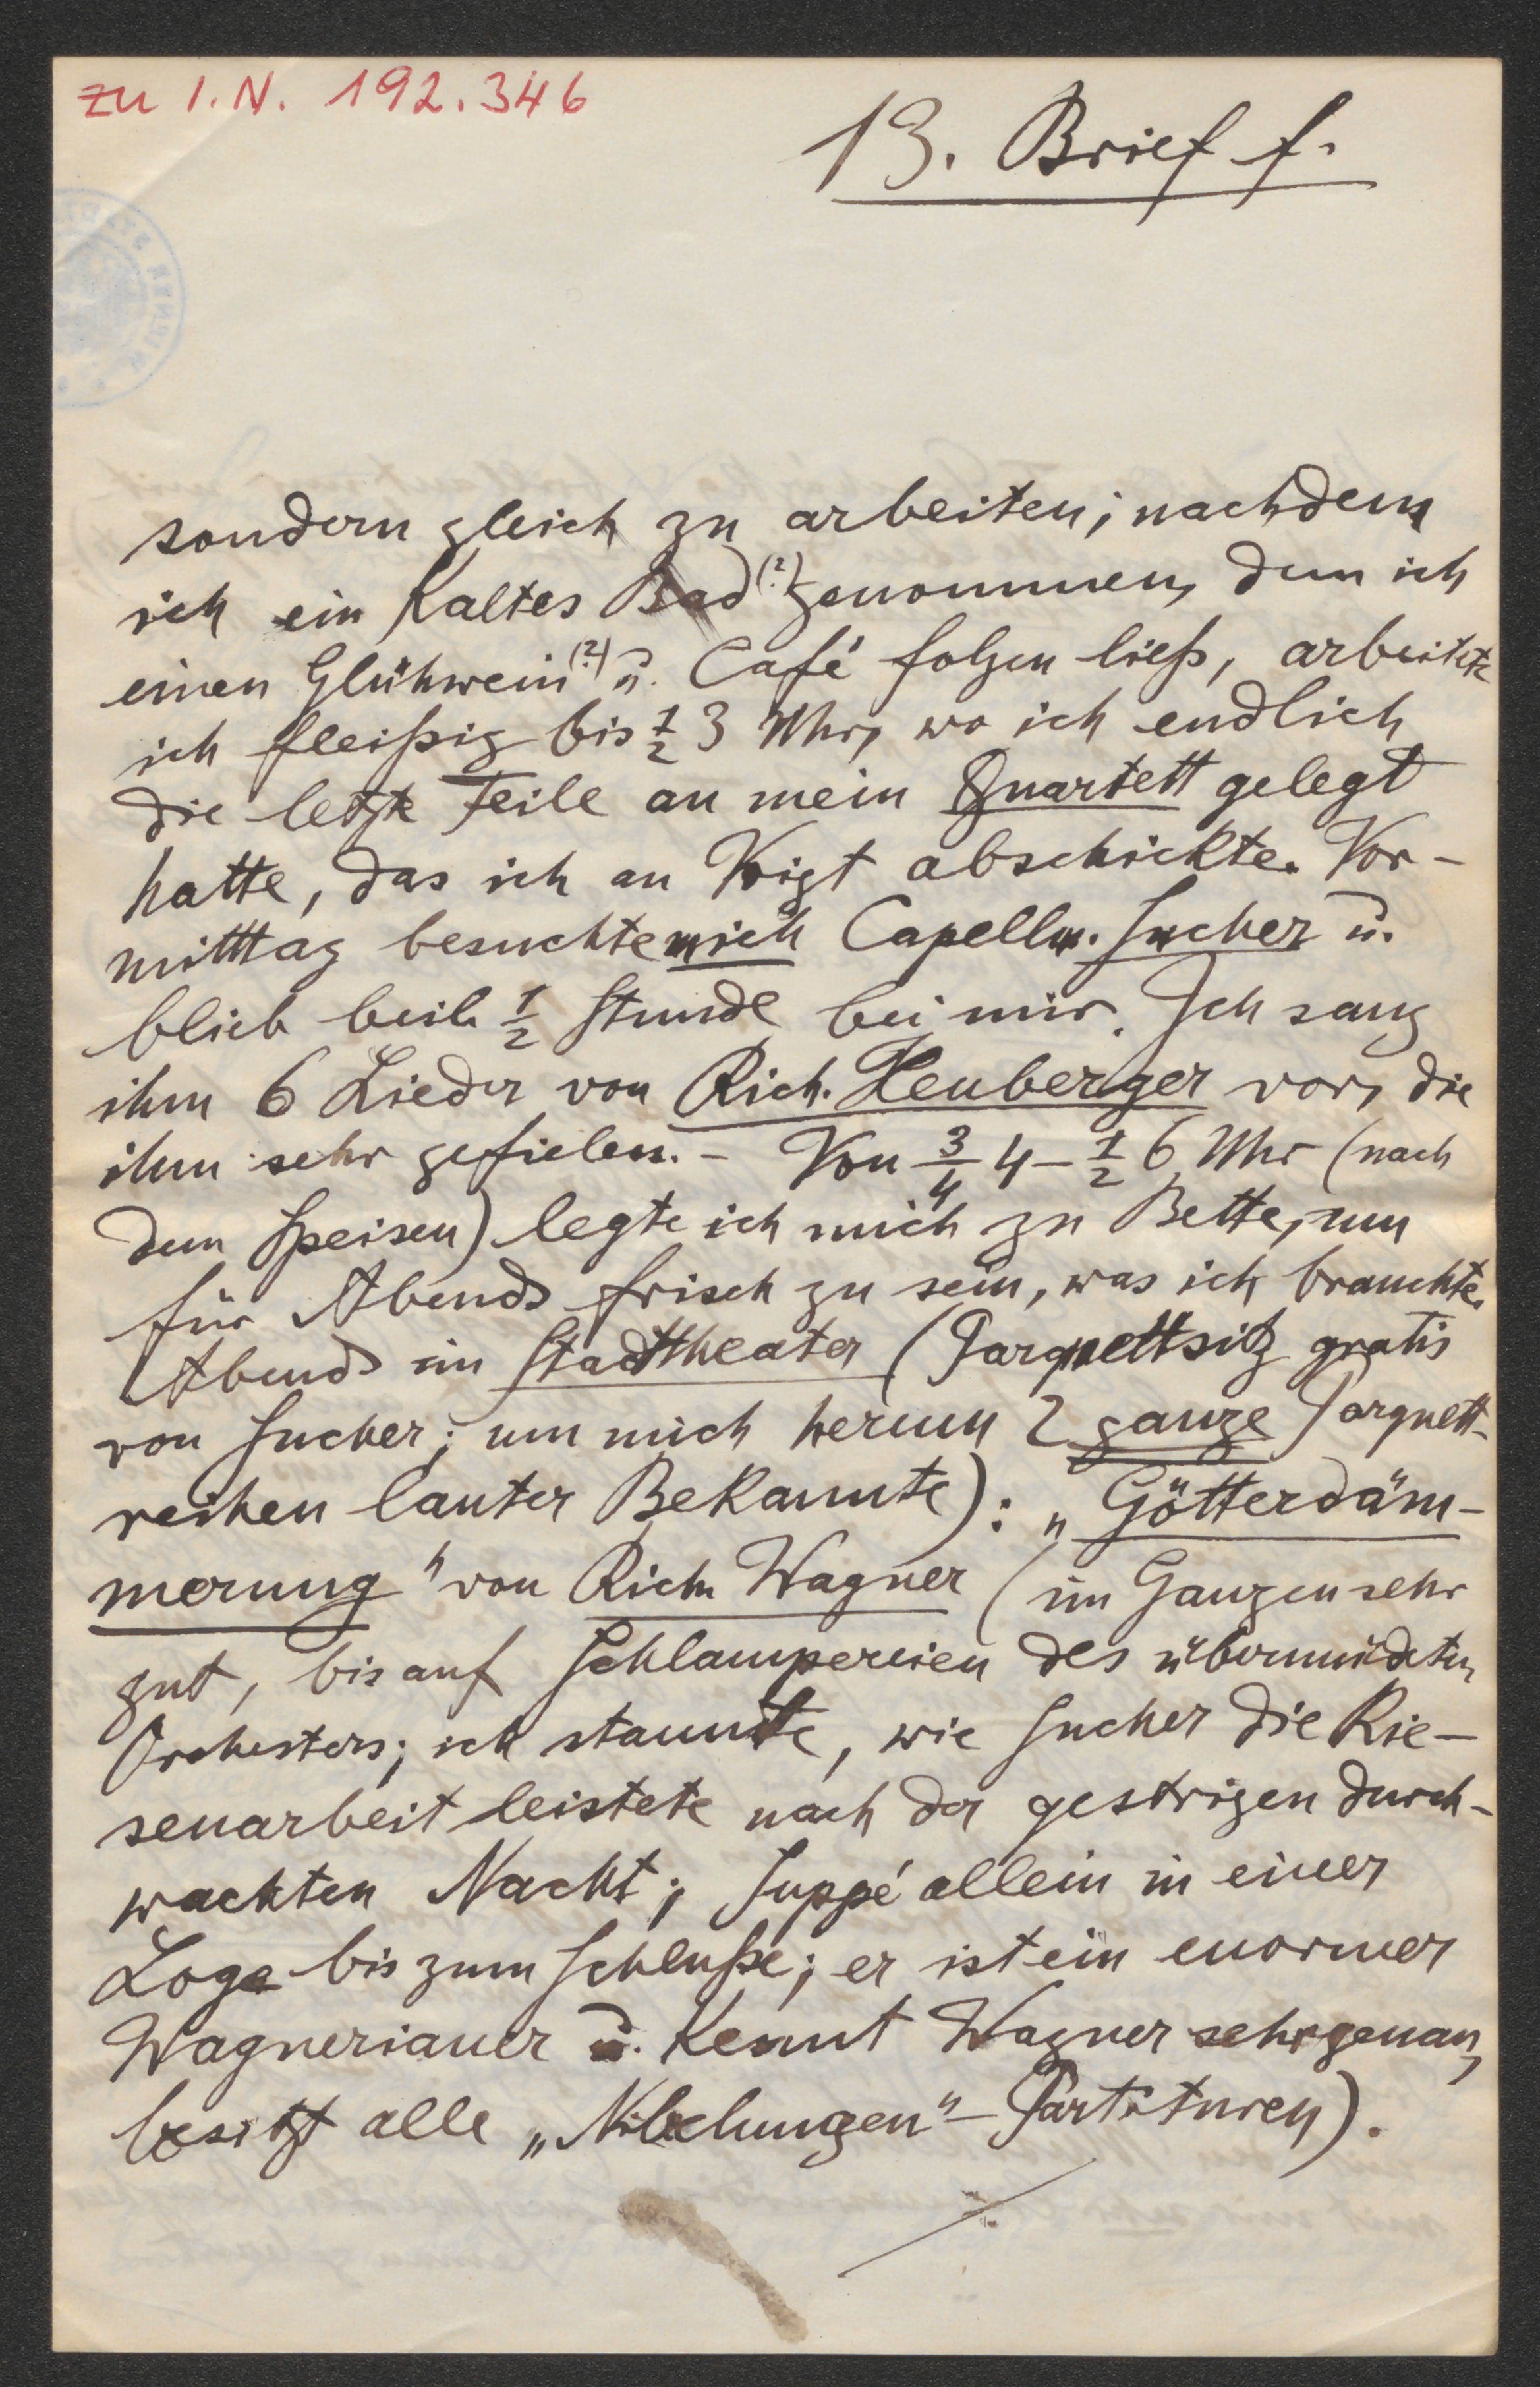 zu I.N. 192.346
13. Brief f.
sondern gleich zu arbeiten; nachdem
ich ein kaltes Bad(?) genommen, dem ich
einen Glühwein(?) u. Café folgen ließ, arbeitete
ich fleißig bis ½ 3 Uhr, wo ich endlich
die letzte Feile an mein Quartett gelegt
hatte, das ich an Voigt abschickte. Vor-
mitttag besuchte mich Capellm. Sucher u.
blieb beil. ½ Stunde bei mir. Ich sang
ihm 6 Lieder von Rich. Heuberger vor, die
ihm sehr gefielen. – Von ¾ 4 – ½ 6 Uhr (nach
dem Speisen) legte ich mich zu Bette, um
für Abends frisch zu sein, was ich brauchte.
Abends im Stadttheater (Parquettsitz gratis
von Sucher; um mich herum 2 ganze Parquett-
reihen lauter Bekannte): „Götterdäm-
merung" von Rich. Wagner (im Ganzen sehr
gut, bis auf Schlampereien des übermüdeten
Orchesters; ich staunte, wie Sucher die Rie-
senarbeit leistete nach der gestrigen durch-
wachten Nacht; Suppé allein in einer
Loge bis zum Schluße; er ist ein enormer
Wagnerianer u. kennt Wagner sehr genau,
besitzt alle „Nibelungen"-Partituren).